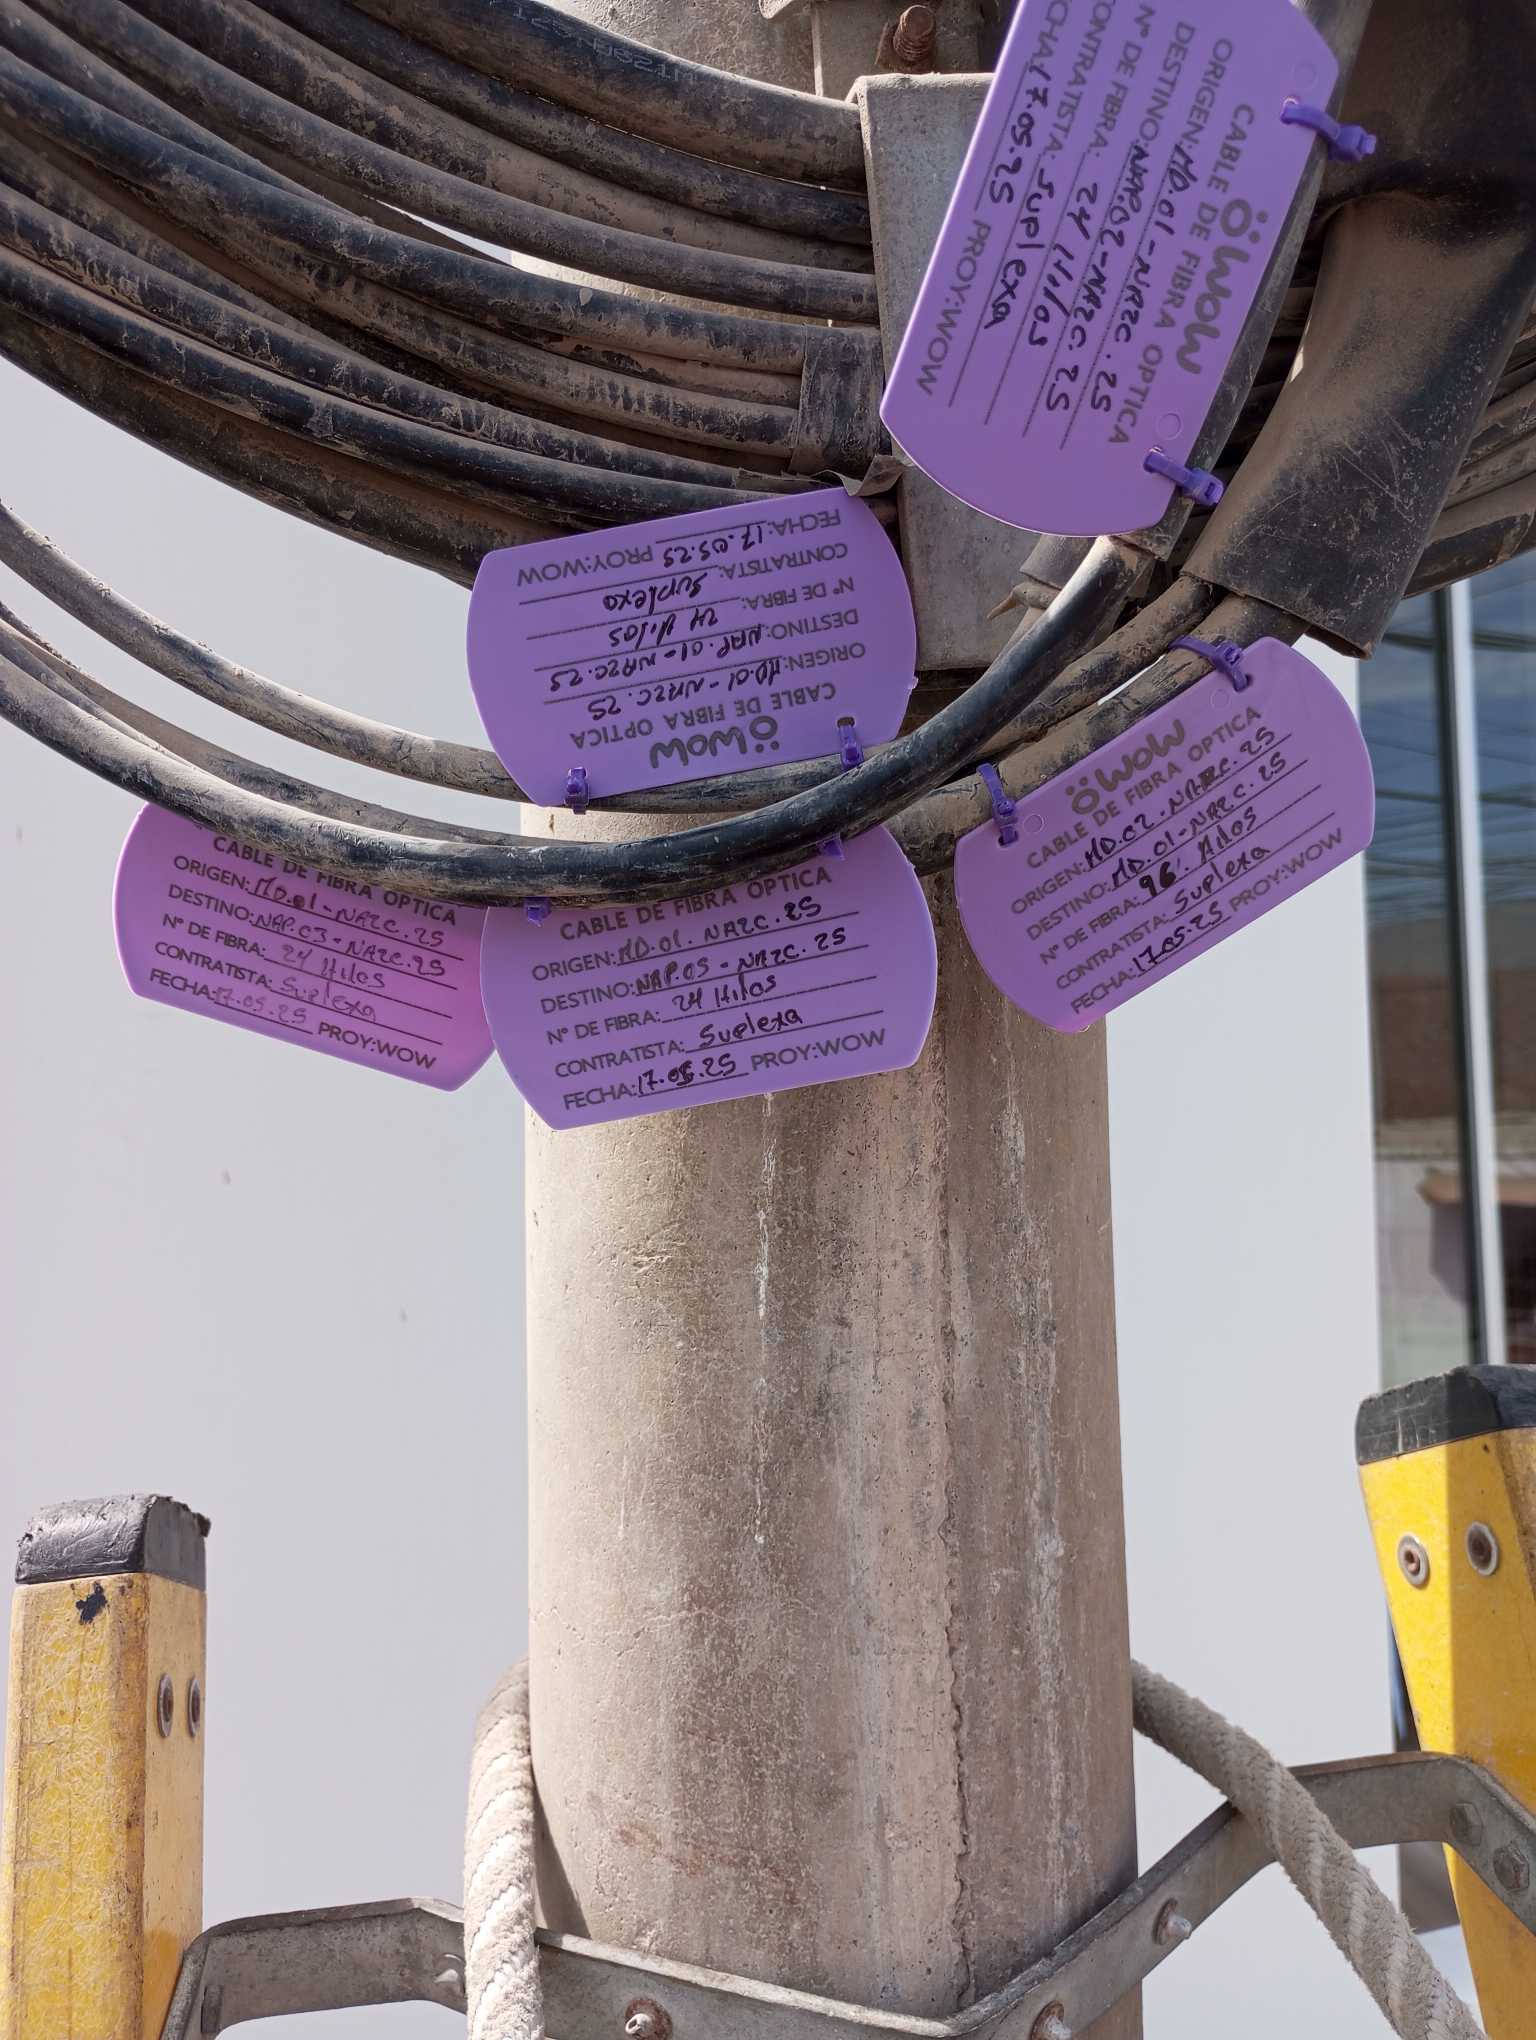 WOW
CABLE DE FIBRA OPTICA
ORIGEN: MD.01-NAZC.25
DESTINO: NAP.02-NAZC.25
N° DE FIBRA: 24 Hilos
CONTRATISTA: Suplexa
17.05.25 PROY:WOW
WOW
CABLE DE FIBRA OPTICA
ORIGEN: MD.01-NAZC.25
DESTINO: NAP.01-NAZC.25
N° DE FIBRA: 24 Hilos
CONTRATISTA: Suplexa
FECHA: 17.05.25 PROY:WOW
CABLE DE FIBRA OPTICA
ORIGEN: MD.01-NAZC.25
DESTINO: NAP.03-NAZC.25
N° DE FIBRA: 24 Hilos
CONTRATISTA: Suplexa
FECHA: 17.05.25 PROY:WOW
CABLE DE FIBRA OPTICA
ORIGEN: MD.01. NAZC.25
DESTINO: NAP.05-NAZC.25
N° DE FIBRA: 24 Hilos
CONTRATISTA: Suplexa
FECHA: 17.05.25 PROY:WOW
WOW
CABLE DE FIBRA OPTICA
ORIGEN: MD.02-NAZC.25
DESTINO: MD.01-NAZC.25
N° DE FIBRA: 96 Hilos
CONTRATISTA: Suplexa
FECHA: 17.05.25 PROY:WOW